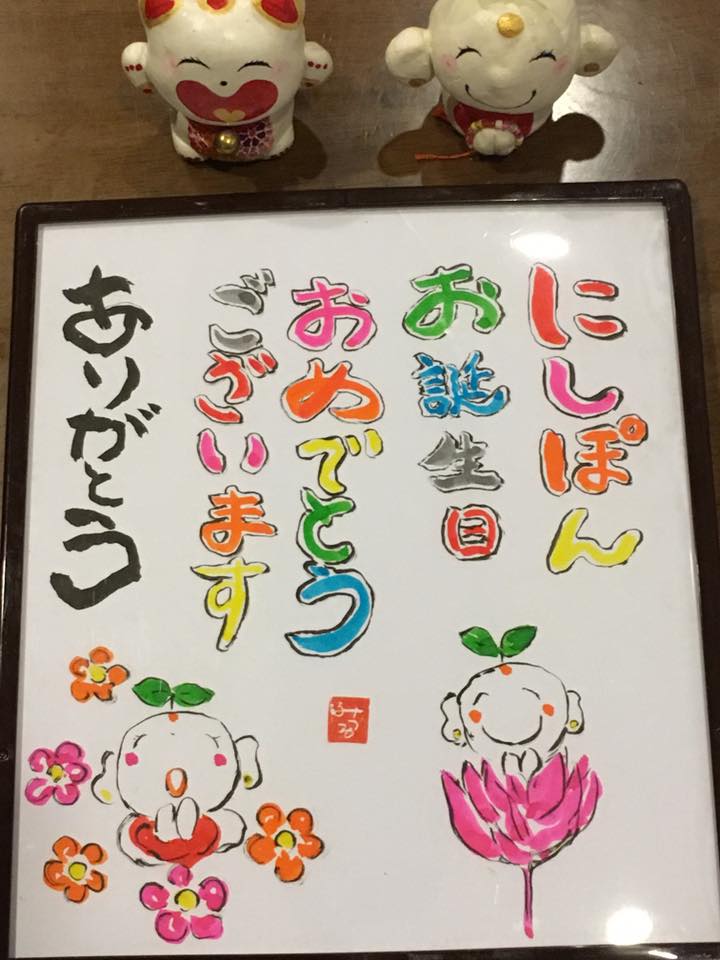 にしぽん
お誕生日
おめでとう
ございます
ありがとう